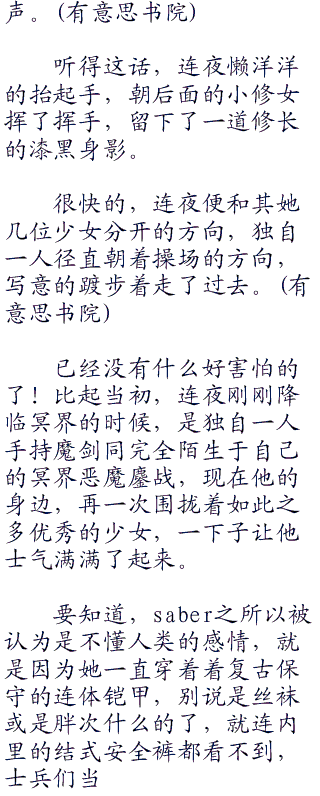 声。(有意思书院)
听得这话，连夜懒洋洋
的抬起手，朝后面的小修女
挥了挥手，留下了一道修长
的漆黑身影。
很快的，连夜便和其她
几位少女分开的方向，独自
一人径直朝着操场的方向，
写意的踱步着走了过去。(有
意思书院)
已经没有什么好害怕的
了！比起当初，连夜刚刚降
临冥界的时候，是独自一人
手持魔剑同完全陌生于自己
的冥界恶魔鏖战，现在他的
身边，再一次围拢着如此之
多优秀的少女，一下子让他
士气满满了起来。
要知道，saber之所以被
认为是不懂人类的感情，就
是因为她一直穿着着复古保
守的连体铠甲，别说是丝袜
或是胖次什么的了，就连内
里的结式安全裤都看不到，
士兵们当